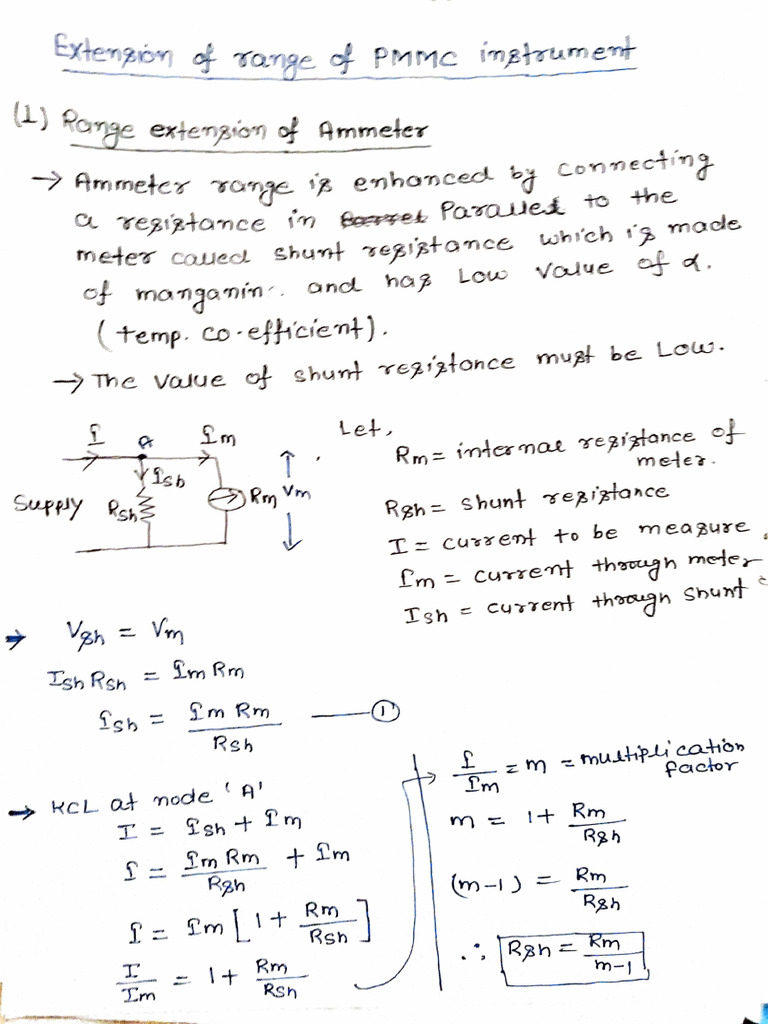 Extension of range of PMMC instrument
(1) Range extension of Ammeter
→ Ammeter range is enhanced by connecting
a resistance in Parallel to the
meter called shunt resistance which is made
of manganin. and has Low value of α.
(temp. co-efficient).
→ The value of shunt resistance must be Low.
I A Im
Ish
Supply Rsh Rm Vm
Let,
Rm = internal resistance of
meter.
Rsh = shunt resistance
I = current to be measure
Im = current through meter
Ish = current through shunt
→ Vsh = Vm
Ish Rsh = Im Rm
Ish = Im Rm / Rsh —— ①
→ KCL at node 'A'
I = Ish + Im
I = Im Rm / Rsh + Im
I = Im [1 + Rm / Rsh]
I / Im = 1 + Rm / Rsh
→ I / Im = m = multiplication
factor
m = 1 + Rm / Rsh
(m-1) = Rm / Rsh
∴ Rsh = Rm / m-1